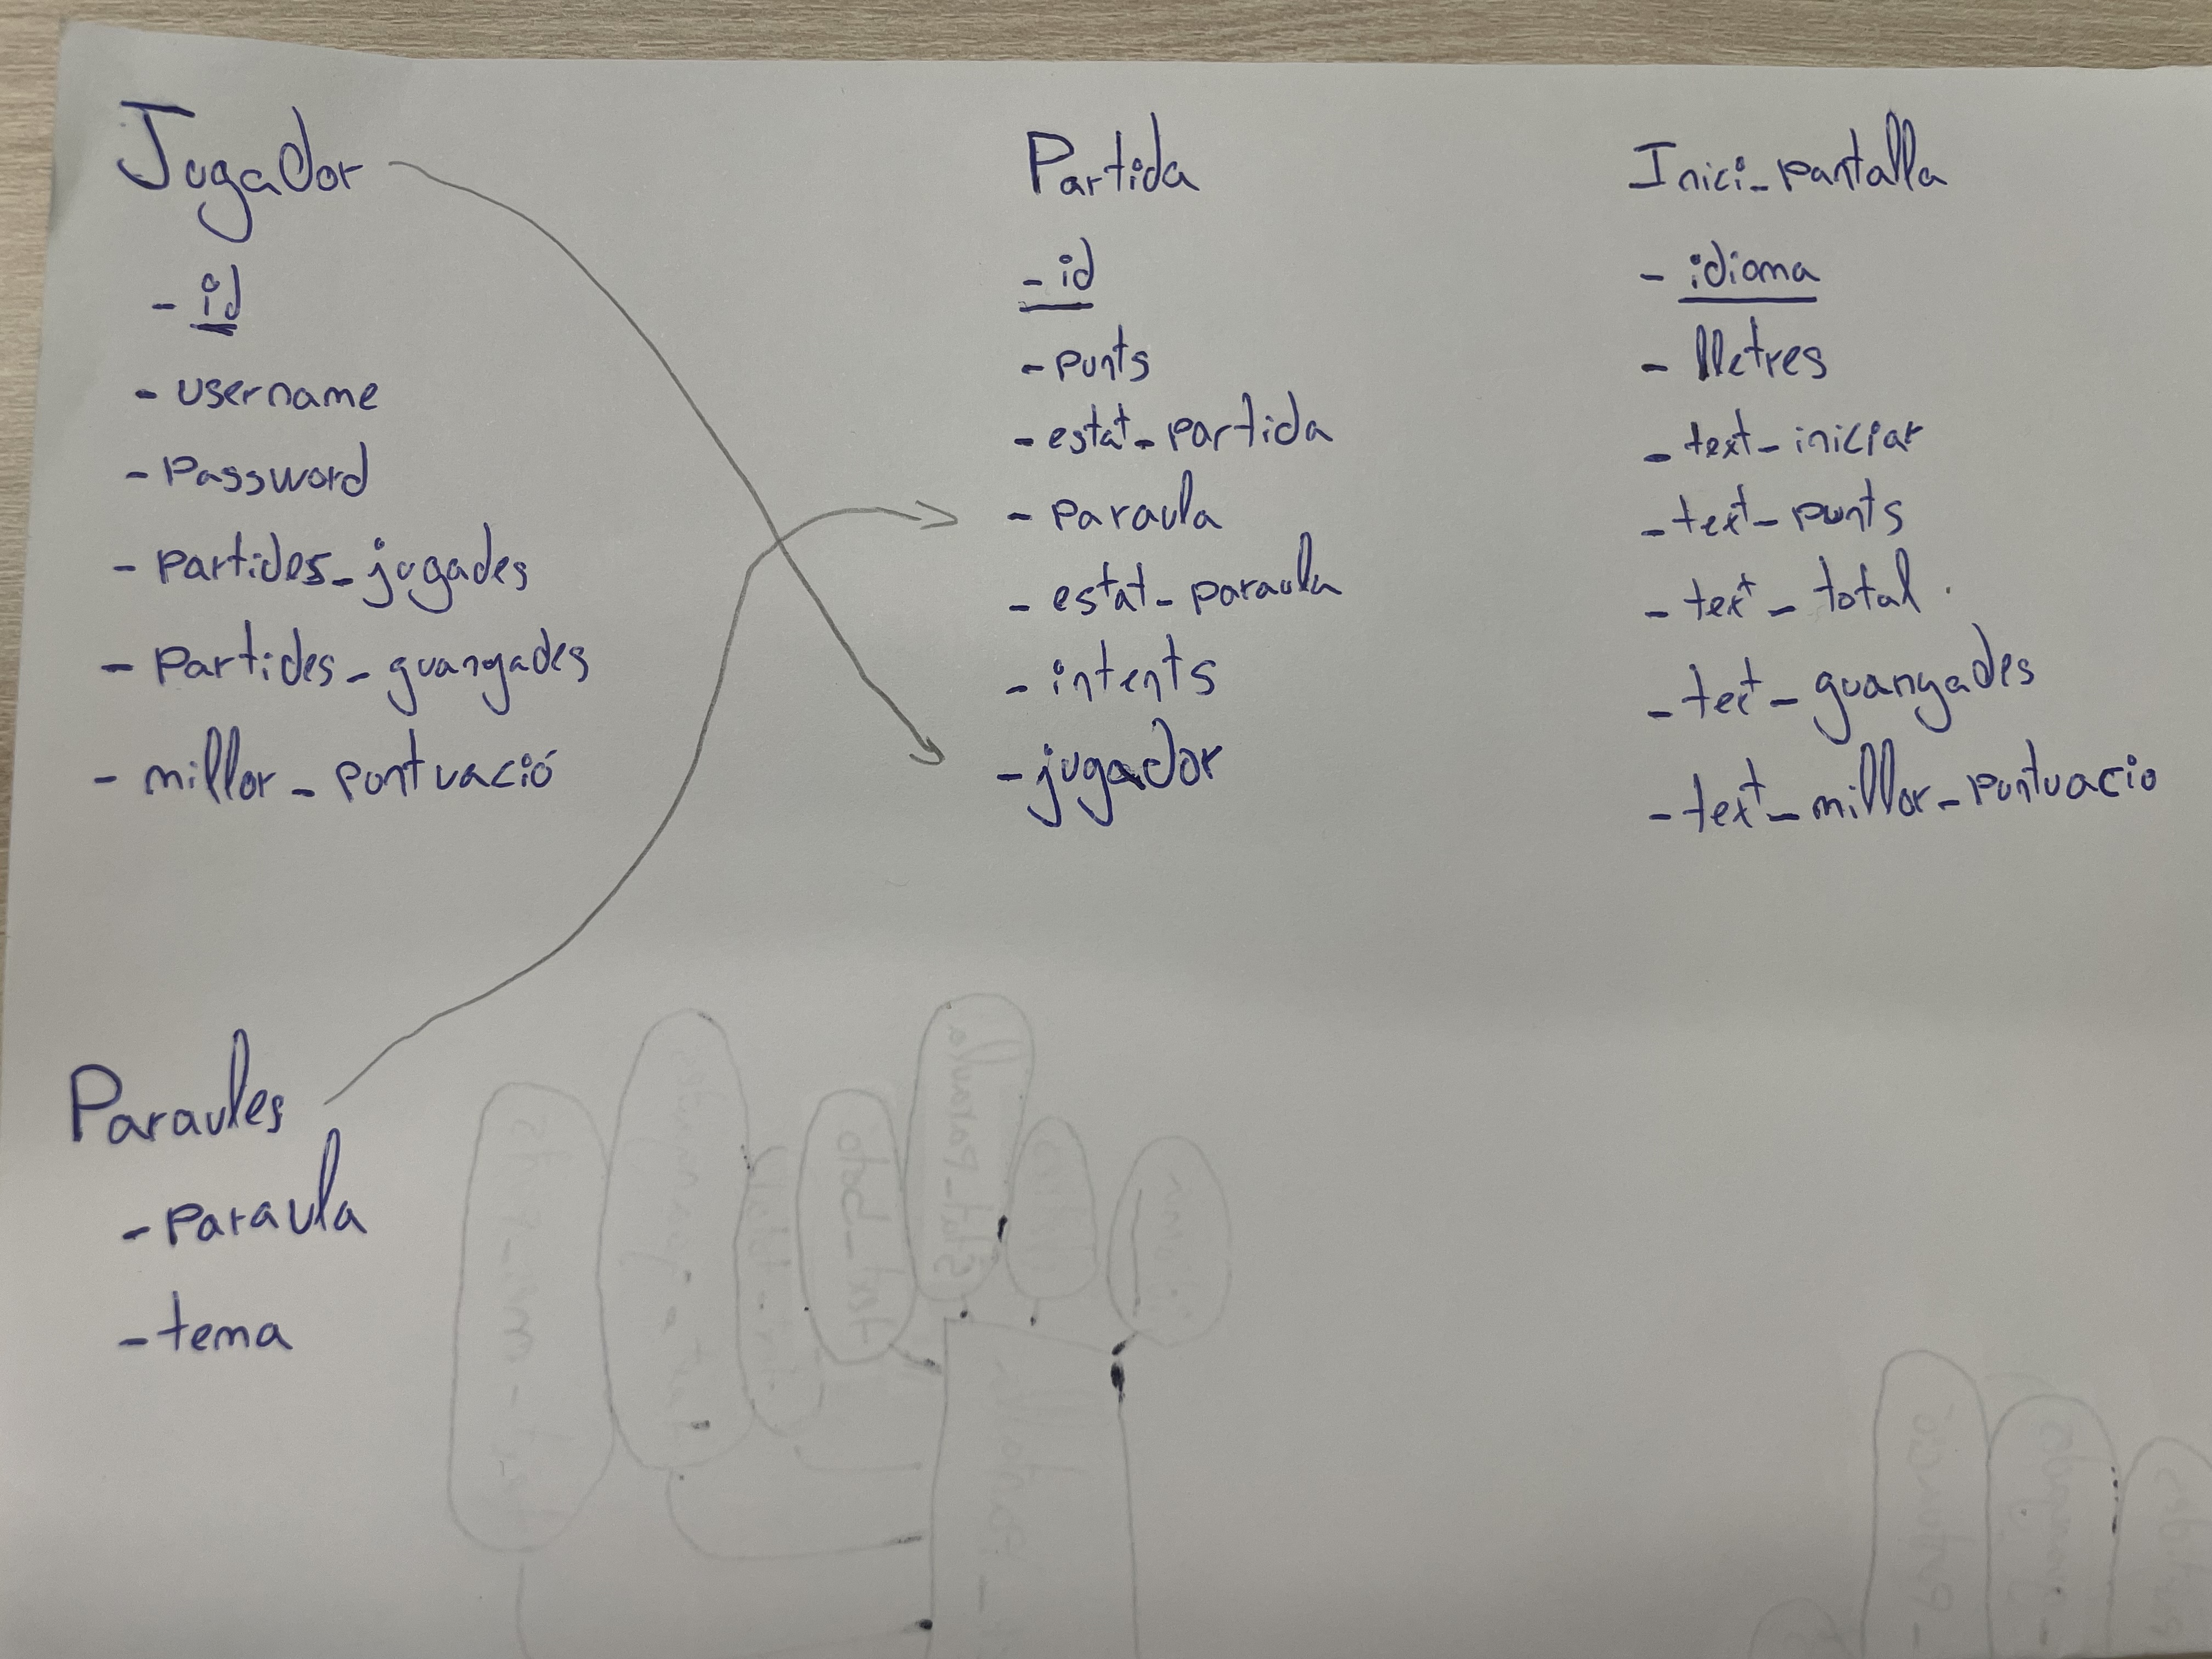 Jugador
- id
- username
- Password
- partides_jugades
- Partides_guanyades
- millor_puntuació
Paraules
- paraula
- tema
Partida
- id
- punts
- estat_partida
- paraula
- estat_paraula
- intents
- jugador
Inici_pantalla
- idioma
- lletres
- text_iniciar
- text_punts
- text_total
- text_guanyades
- text_millor_puntuacio